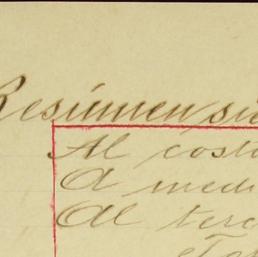 Resúmen
Al costo
A medi
Al terc